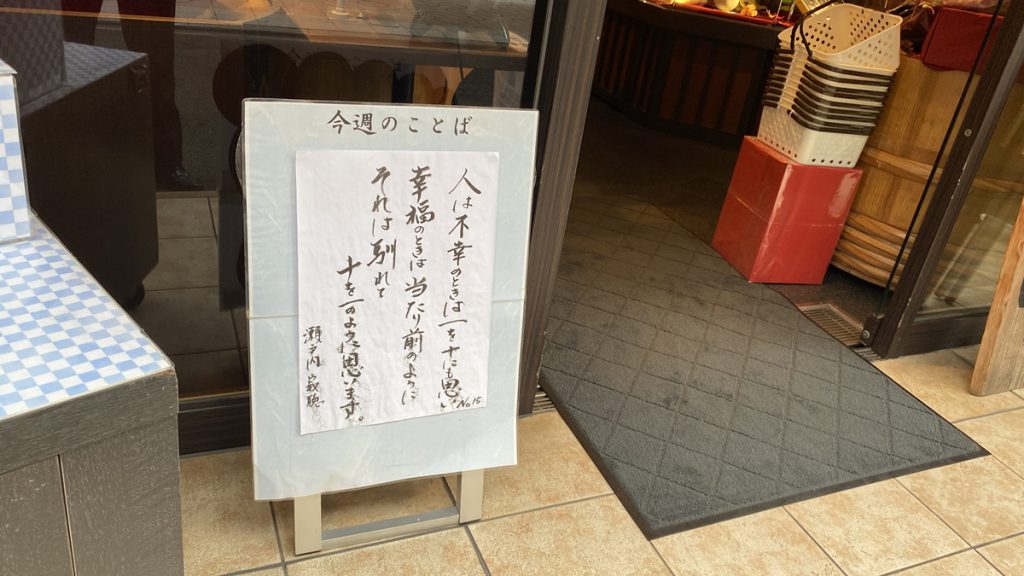 今週のことば
人は不幸のときは一を十にも思い
幸福のときは当たり前のように
それは馴れて
十を一のように思います。
瀬戸内寂聴
No.15